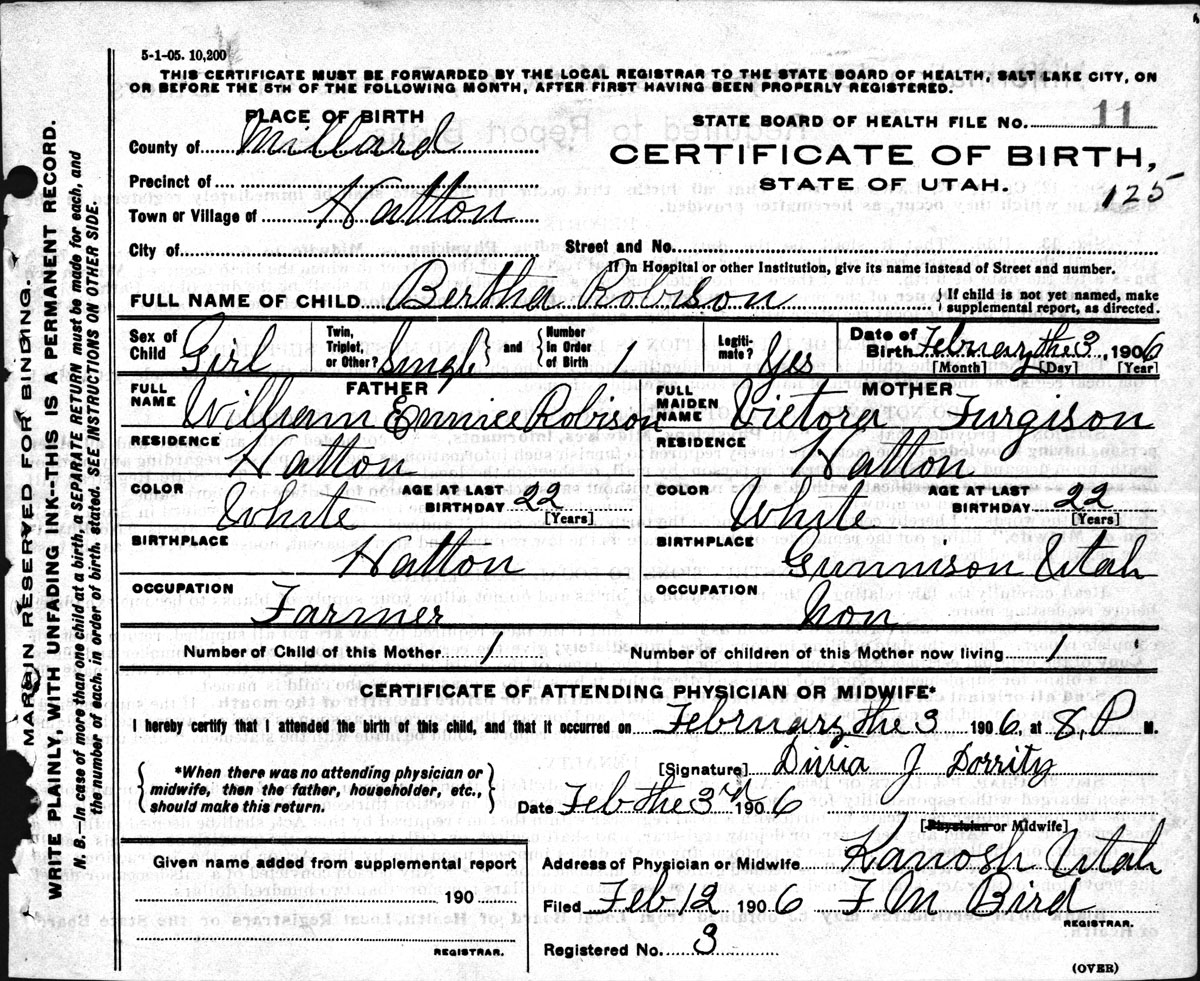 5-1-05. 10,200
THIS CERTIFICATE MUST BE FORWARDED BY THE LOCAL REGISTRAR TO THE STATE BOARD OF HEALTH, SALT LAKE CITY, ON
OR BEFORE THE 5TH OF THE FOLLOWING MONTH, AFTER FIRST HAVING BEEN PROPERLY REGISTERED.
PLACE OF BIRTH
STATE BOARD OF HEALTH FILE No. 11
County of Millard
CERTIFICATE OF BIRTH,
STATE OF UTAH.
125
Precinct of
Town or Village of Hatton
City of
Street and No.
If in Hospital or other Institution, give its name instead of Street and number.
FULL NAME OF CHILD Bertha Robison
{If child is not yet named, make
supplemental report, as directed.
Sex of Child Girl
Twin, Triplet, or Other? Singl} and {Number in Order of Birth 1
Legiti- mate? Yes
Date of Birth February the 3, 1906
[Month] [Day] [Year]
FATHER
FULL NAME William Robison
RESIDENCE
Hatton
COLOR White
AGE AT LAST BIRTHDAY 22
[Years]
BIRTHPLACE
Hatton
OCCUPATION
Farmer
MOTHER
FULL MAIDEN NAME Victora Furgison
RESIDENCE
Hatton
COLOR White
AGE AT LAST BIRTHDAY 22
[Years]
BIRTHPLACE
Gunnison Utah
OCCUPATION
Non
Number of Child of this Mother 1
Number of children of this Mother now living 1
CERTIFICATE OF ATTENDING PHYSICIAN OR MIDWIFE*
I hereby certify that I attended the birth of this child, and that it occurred on February the 3 1906, at 8.P M.
{*When there was no attending physician or
midwife, then the father, householder, etc.,
should make this return.}
[Signature] J Dorrity
Date Feb the 3 1906
[Physician or Midwife]
Given name added from supplemental report
190
REGISTRAR.
Address of Physician or Midwife Kanosh Utah
Filed Feb 12 1906 F M Bird
REGISTRAR.
Registered No. 3
(OVER)
MARGIN RESERVED FOR BINDING.
WRITE PLAINLY, WITH UNFADING INK--THIS IS A PERMANENT RECORD.
N. B.—In case of more than one child at a birth, a SEPARATE RETURN must be made for each, and
the number of each, in order of birth, stated. SEE INSTRUCTIONS ON OTHER SIDE.